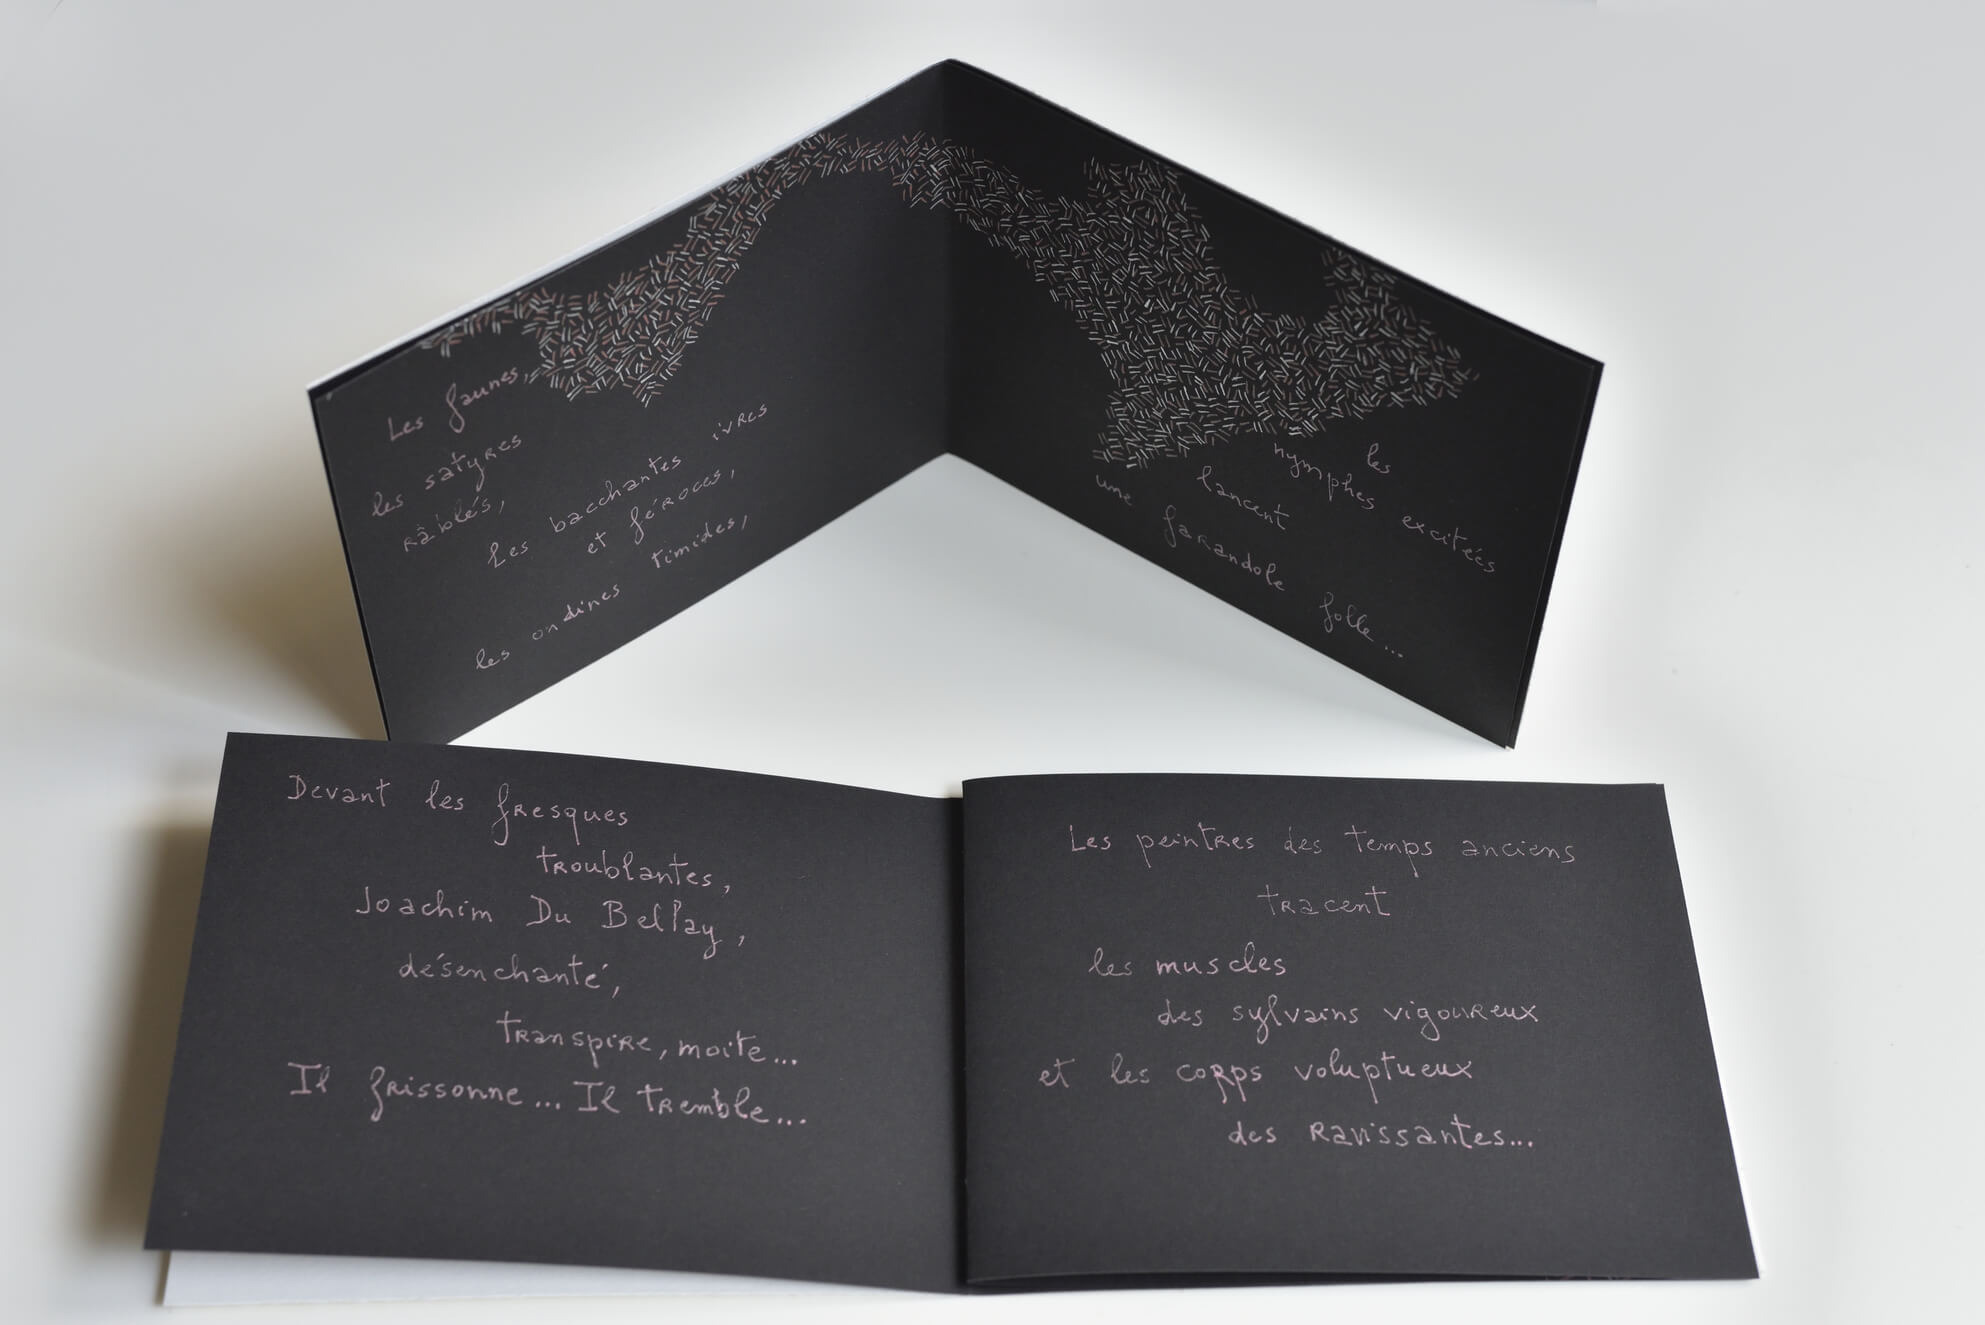 Les faunes,
les satyres
râblés,
les bacchantes ivres
et féroces,
les ondines timides,
les
nymphes excitées
lancent
une farandole folle...
Devant les fresques
troublantes,
Joachim Du Bellay,
désenchanté,
transpire, moite...
Il frissonne... Il tremble...
Les peintres des temps anciens
tracent
les muscles
des sylvains vigoureux
et les corps voluptueux
des Ravissantes...